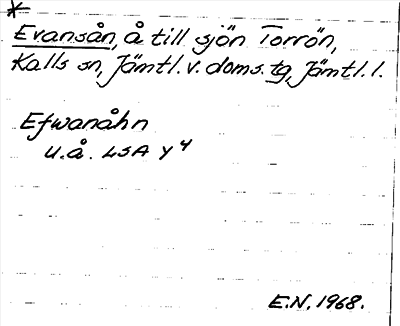 *
Evansån, å till sjön Torrön,
Kalls sn, Jämtl. v. doms. tg, Jämtl. l.
Efwanåhn
u. å. LSA Y 4
E.N. 1968.